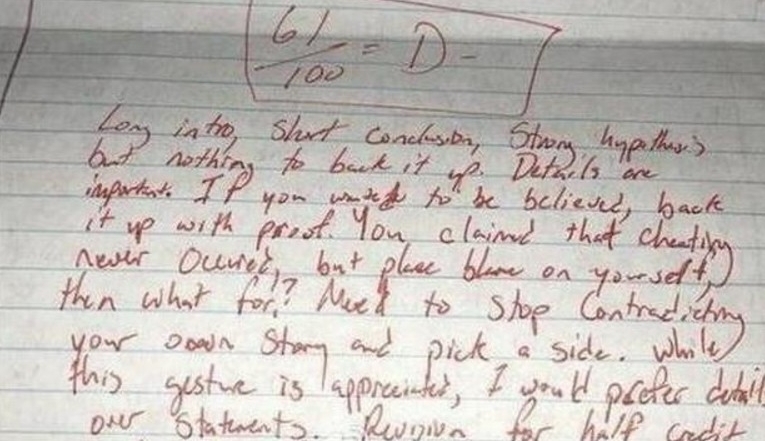 61
100 = D-
Long intro, Short Conclusion, Strong hypothesis
but nothing to back it up. Details are
important. If you wanted to be believed, back
it up with proof. You claimed that cheating
never Occured, but place blame on yourself,
then what for? Need to Stop Contradicting
your own Story and pick a side. While
this gesture is appreciated, I would prefer details
over Statements. Revision for half credit